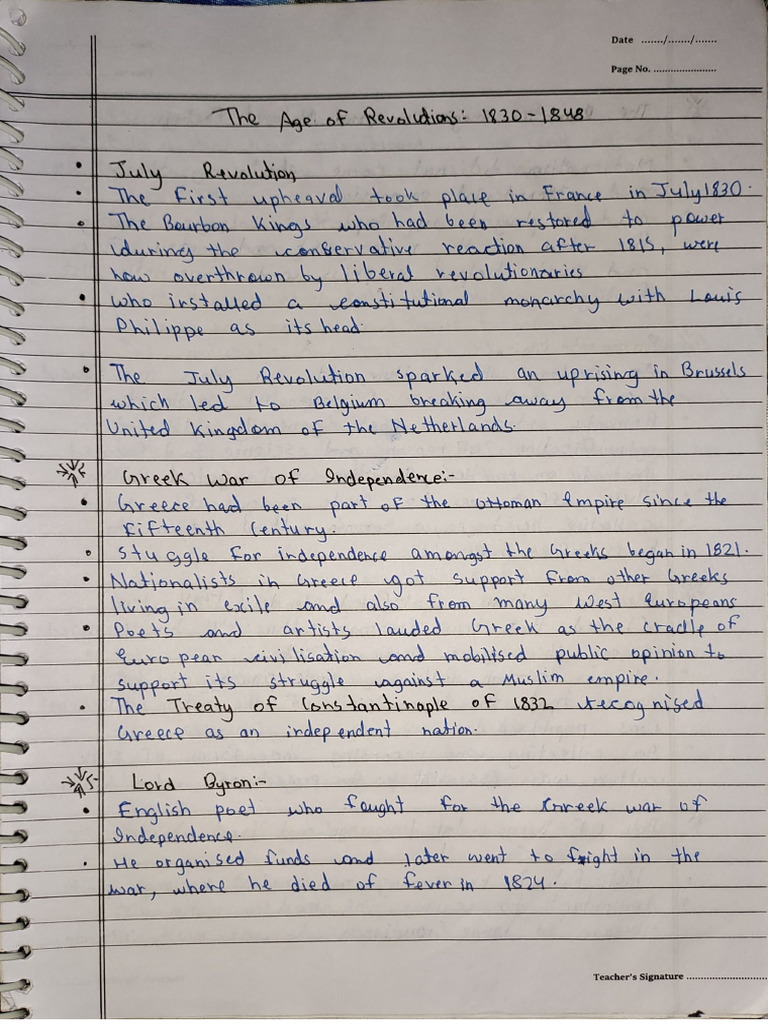 Date ......./......./.......
Page No. ......................
The Age of Revolutions: 1830-1848
• July Revolution
• The first upheaval took place in France in July 1830.
• The Bourbon Kings who had been restored to power
during the conservative reaction after 1815, were
now overthrown by liberal revolutionaries
• who installed a constitutional monarchy with Louis
Philippe as its head.
• The July Revolution sparked an uprising in Brussels
which led to Belgium breaking away from the
United Kingdom of the Netherlands.
Greek War of Independence:-
• Greece had been part of the Ottoman Empire since the
Fifteenth Century.
• Stuggle for independence amongst the Greeks began in 1821.
• Nationalists in Greece got support from other Greeks
living in exile and also from many West Europeans
• Poets and artists lauded Greek as the cradle of
European civilisation and mobilised public opinion to
support its struggle against a Muslim empire.
• The Treaty of Constantinople of 1832 recognised
Greece as an independent nation.
Lord Byron:-
• English poet who fought for the Greek war of
Independence.
• He organised funds and later went to fright in the
war, where he died of fever in 1824.
Teacher's Signature ..............................